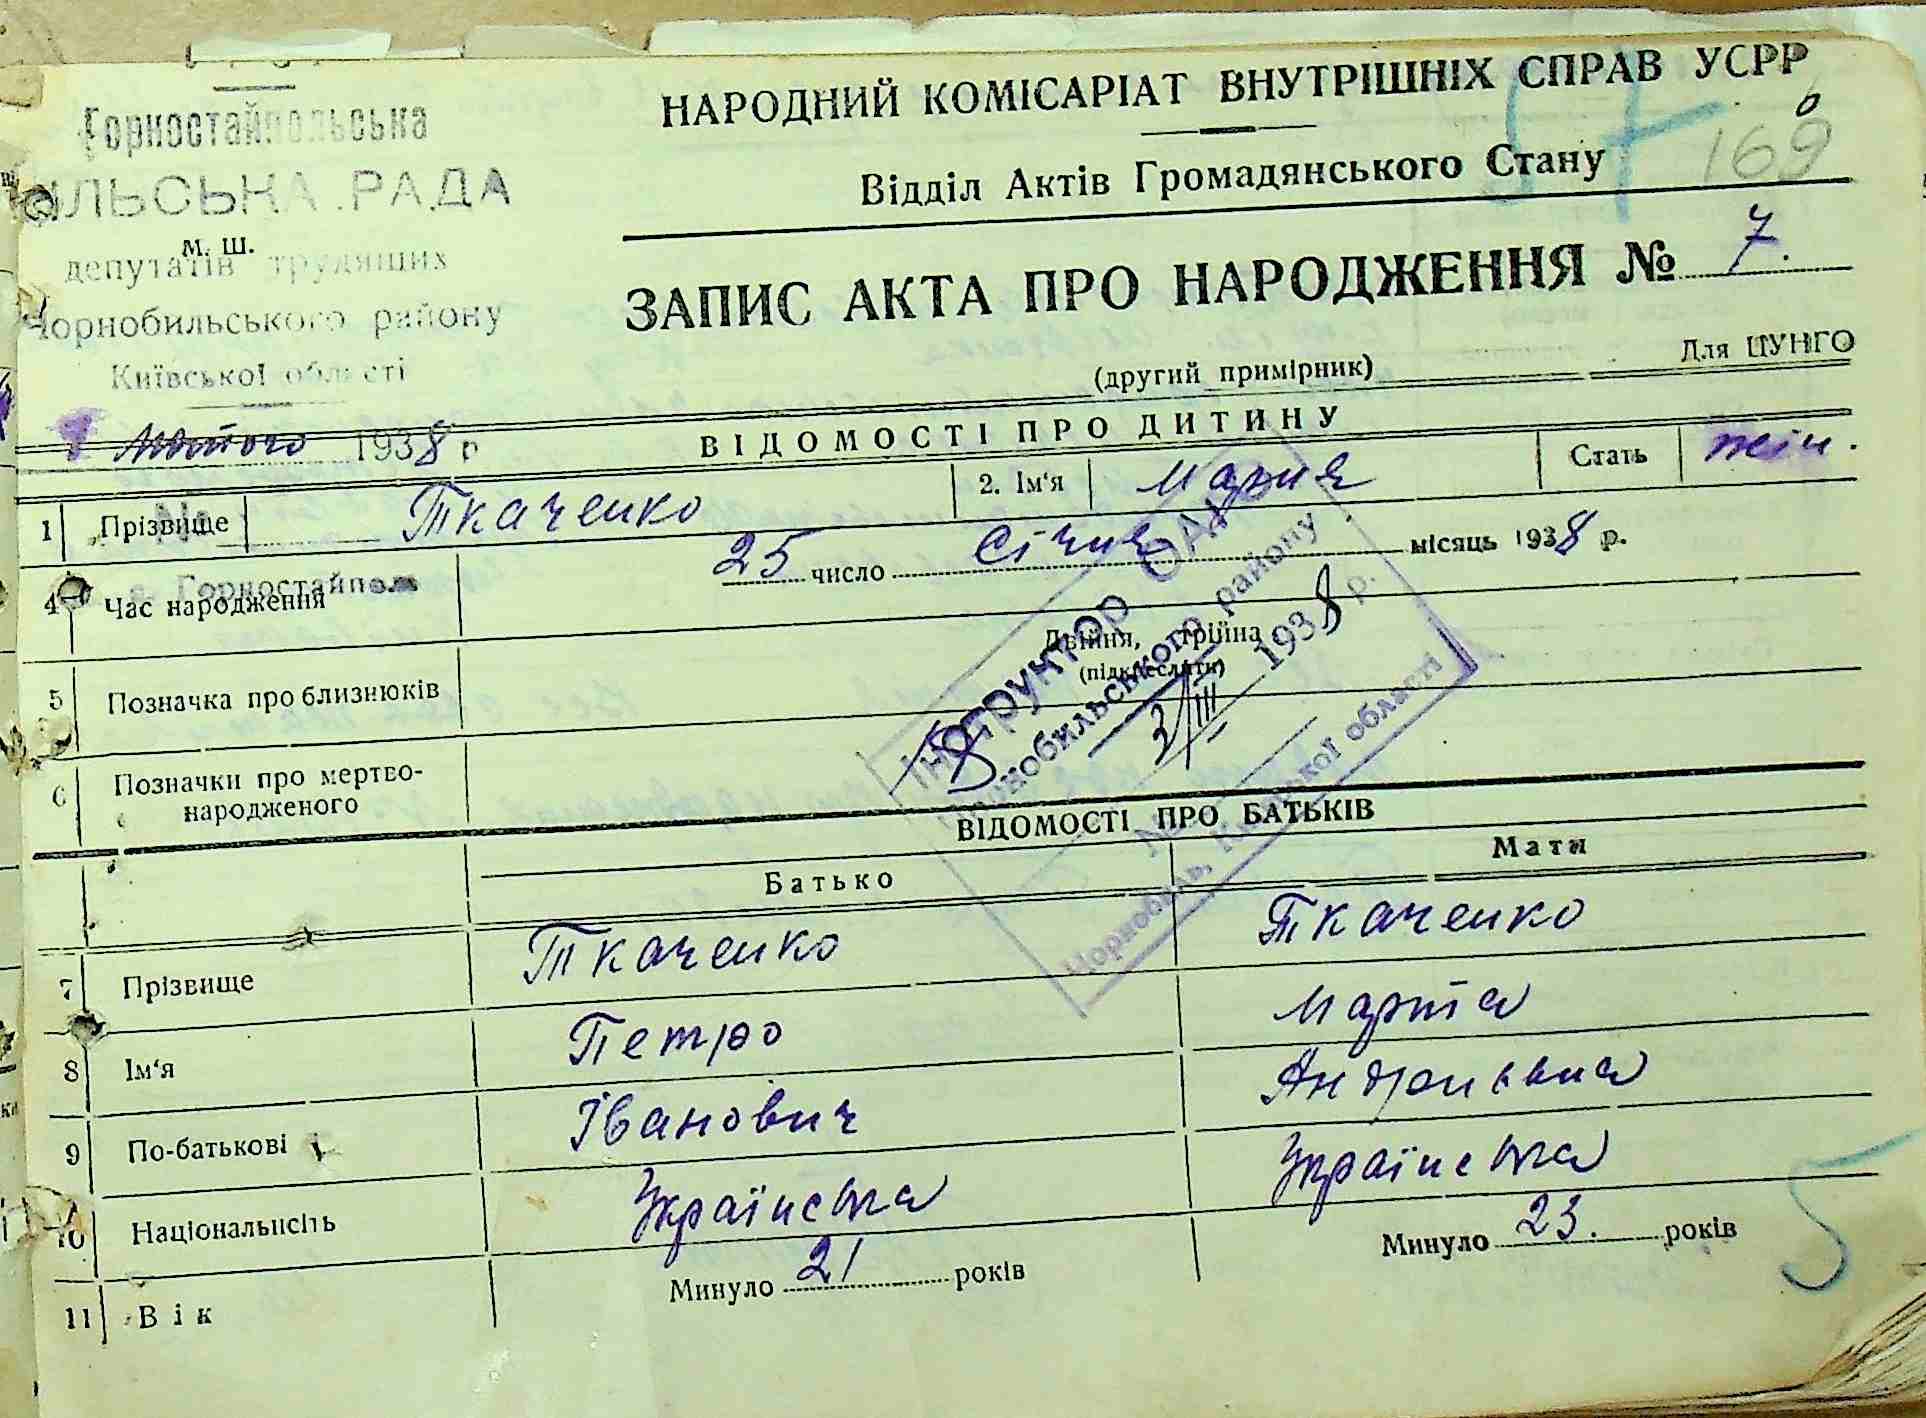 НАРОДНИЙ КОМІСАРІАТ ВНУТРІШНІХ СПРАВ УСРР
Відділ Актів Громадянського Стану
169
Горностайпольська
СІЛЬСЬКА РАДА
м. ш.
депутатів трудящих
Чорнобильського району
Київської області
ЗАПИС АКТА ПРО НАРОДЖЕННЯ № 7.
(другий примірник)
Для ЦУНГО
лютого 1938 р
ВІДОМОСТІ ПРО ДИТИНУ
1 Прізвище Ткаченко 2. Ім'я Мария Стать жін.
с. Горностайпол
4 Час народження 25 число Січня місяць 1938 р.
5 Позначка про близнюків Двійня, трійна
(підкреслити)
6 Позначки про мертво-
народженого
Інструктор ОАГС
Чорнобильського району
3/III 1938 р.
Чорнобиль, Київської області
ВІДОМОСТІ ПРО БАТЬКІВ
Батько Мати
7 Прізвище Ткаченко Ткаченко
8 Ім'я Петро Марта
9 По-батькові Іванович
10 Національність Українська Українська
11 Вік Минуло 21 років Минуло 23. років
5